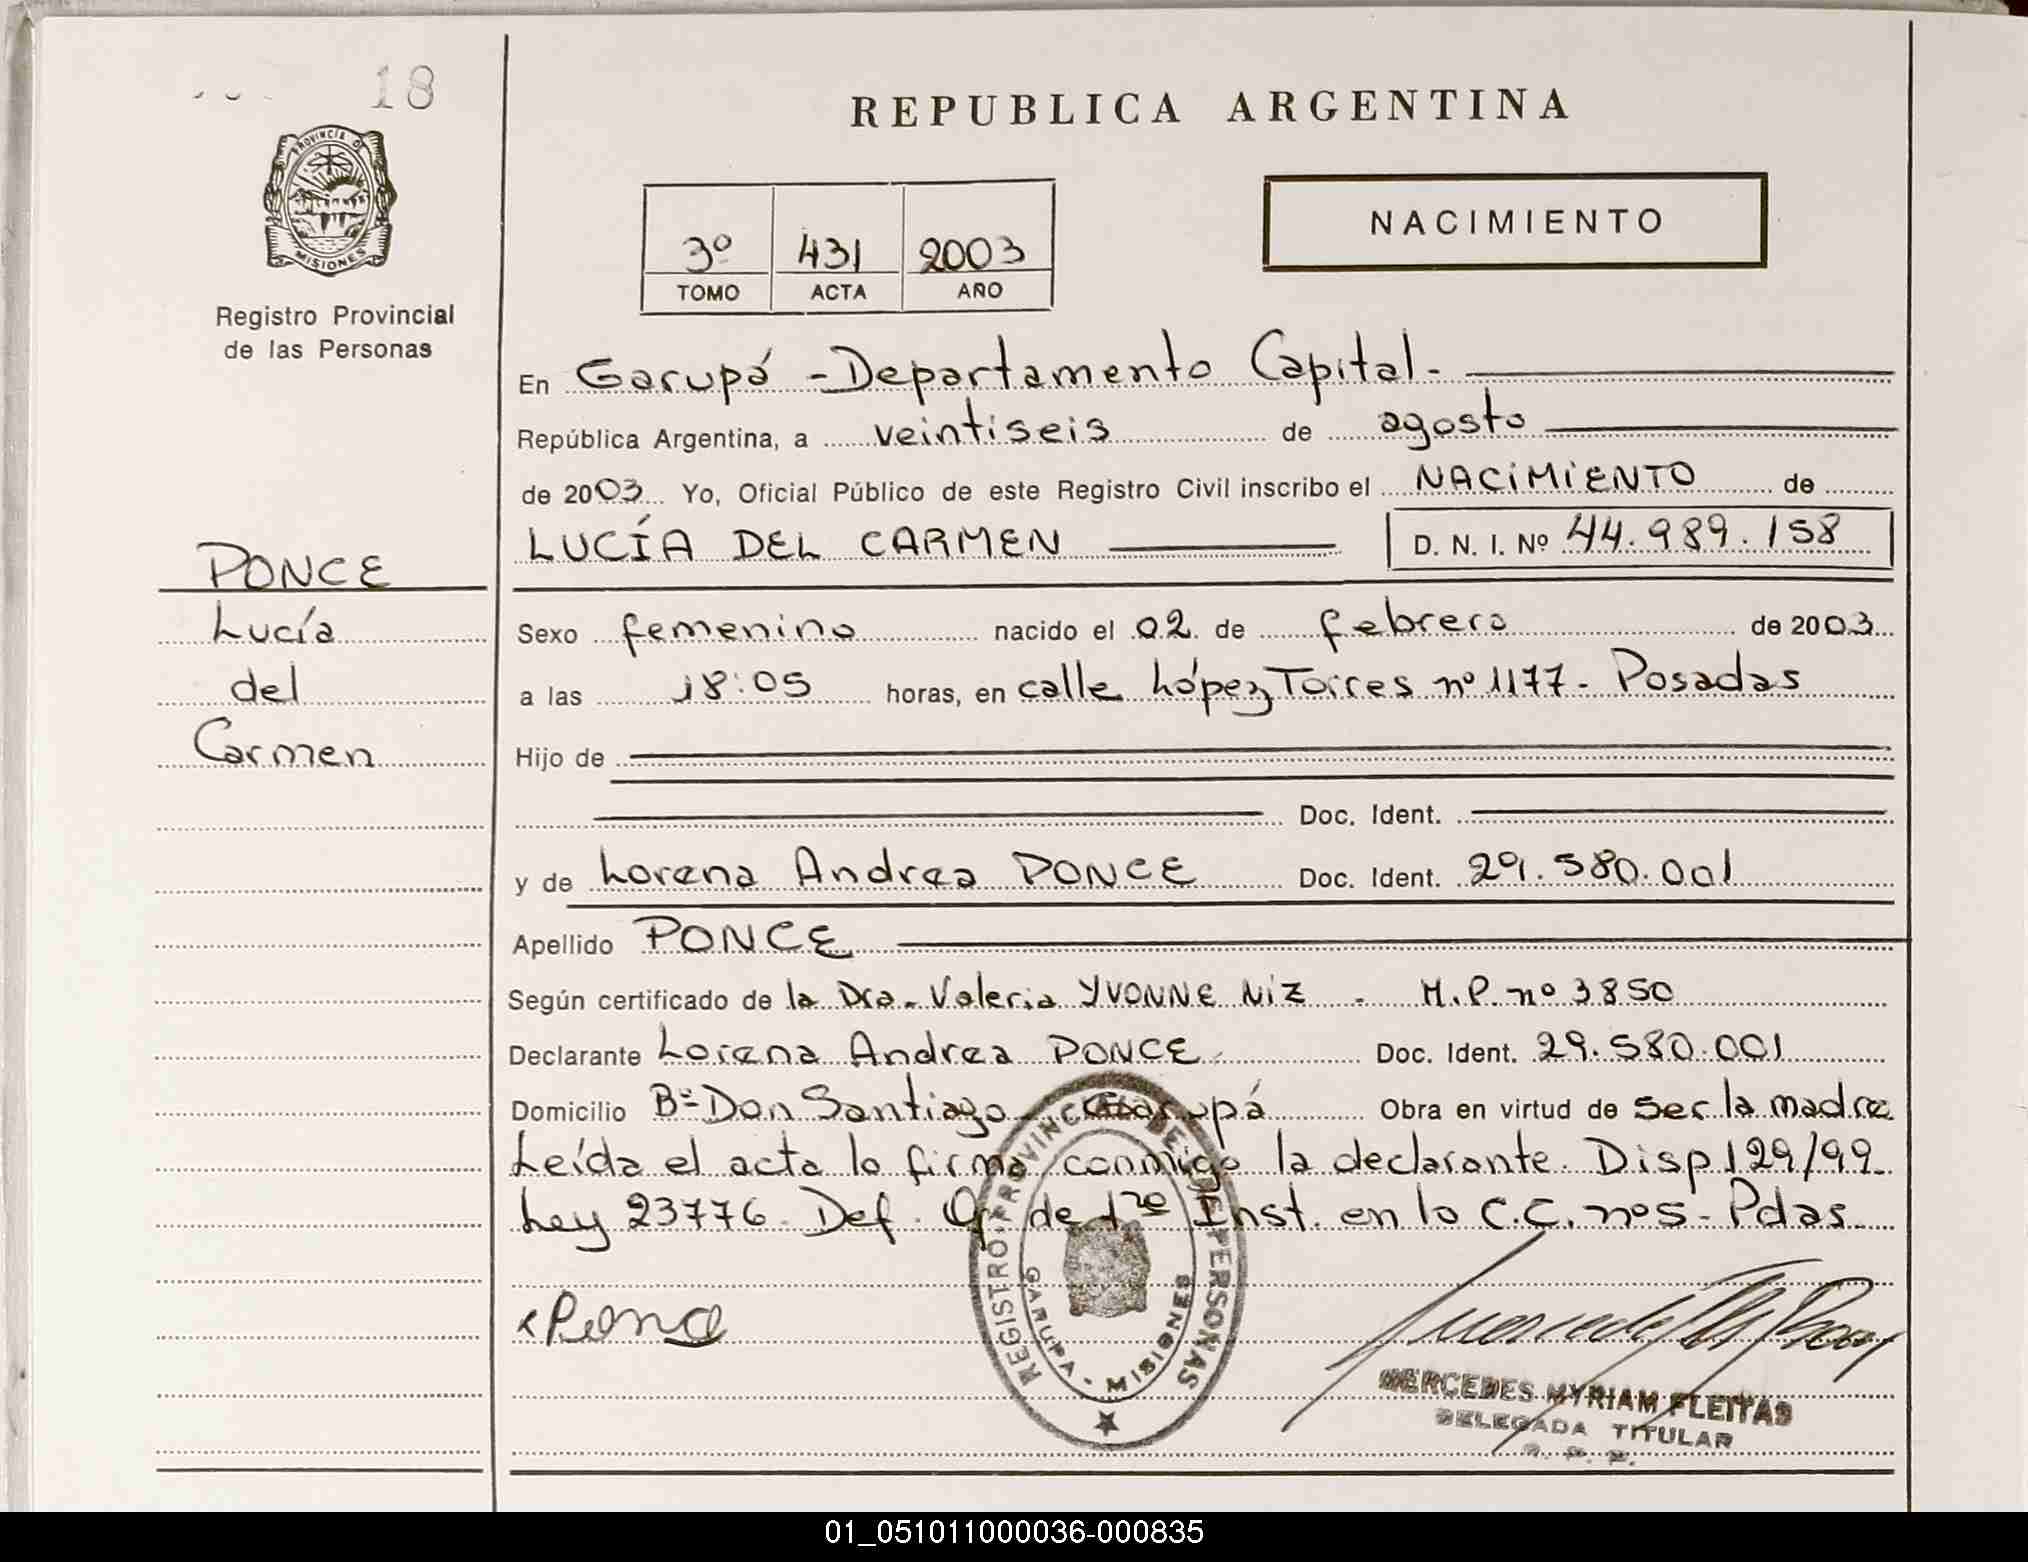 18
PROVINCIA DE
MISIONES
Registro Provincial
de las Personas
REPUBLICA ARGENTINA
3º 431 2003
TOMO ACTA AÑO
NACIMIENTO
En Garupá - Departamento Capital.
República Argentina, a veintiseis de agosto
de 2003 Yo, Oficial Público de este Registro Civil inscribo el NACIMIENTO de
LUCÍA DEL CARMEN D. N. I. Nº 44.989.158
PONCE
Lucía
del
Carmen
Sexo femenino nacido el 02 de febrero de 2003
a las 18:05 horas, en calle López Torres nº 1177 - Posadas
Hijo de
Doc. Ident.
y de Lorena Andrea PONCE Doc. Ident. 29.580.001
Apellido PONCE
Según certificado de la Dra. Valeria YVONNE NIZ - M.P. nº 3850
Declarante Lorena Andrea PONCE Doc. Ident. 29.580.001
Domicilio Bº Don Santiago - Garupá Obra en virtud de ser la madre
Leída el acta la firma conmigo la declarante. Disp 129/99
Ley 23776. Def. Of. de 1ra Inst. en lo C.C. nº 5 - Pdas.
REGISTRO PROVINCIAL DE LAS PERSONAS
GARUPA - MISIONES
MERCEDES MYRIAM FLEITAS
DELEGADA TITULAR
01_051011000036-000835